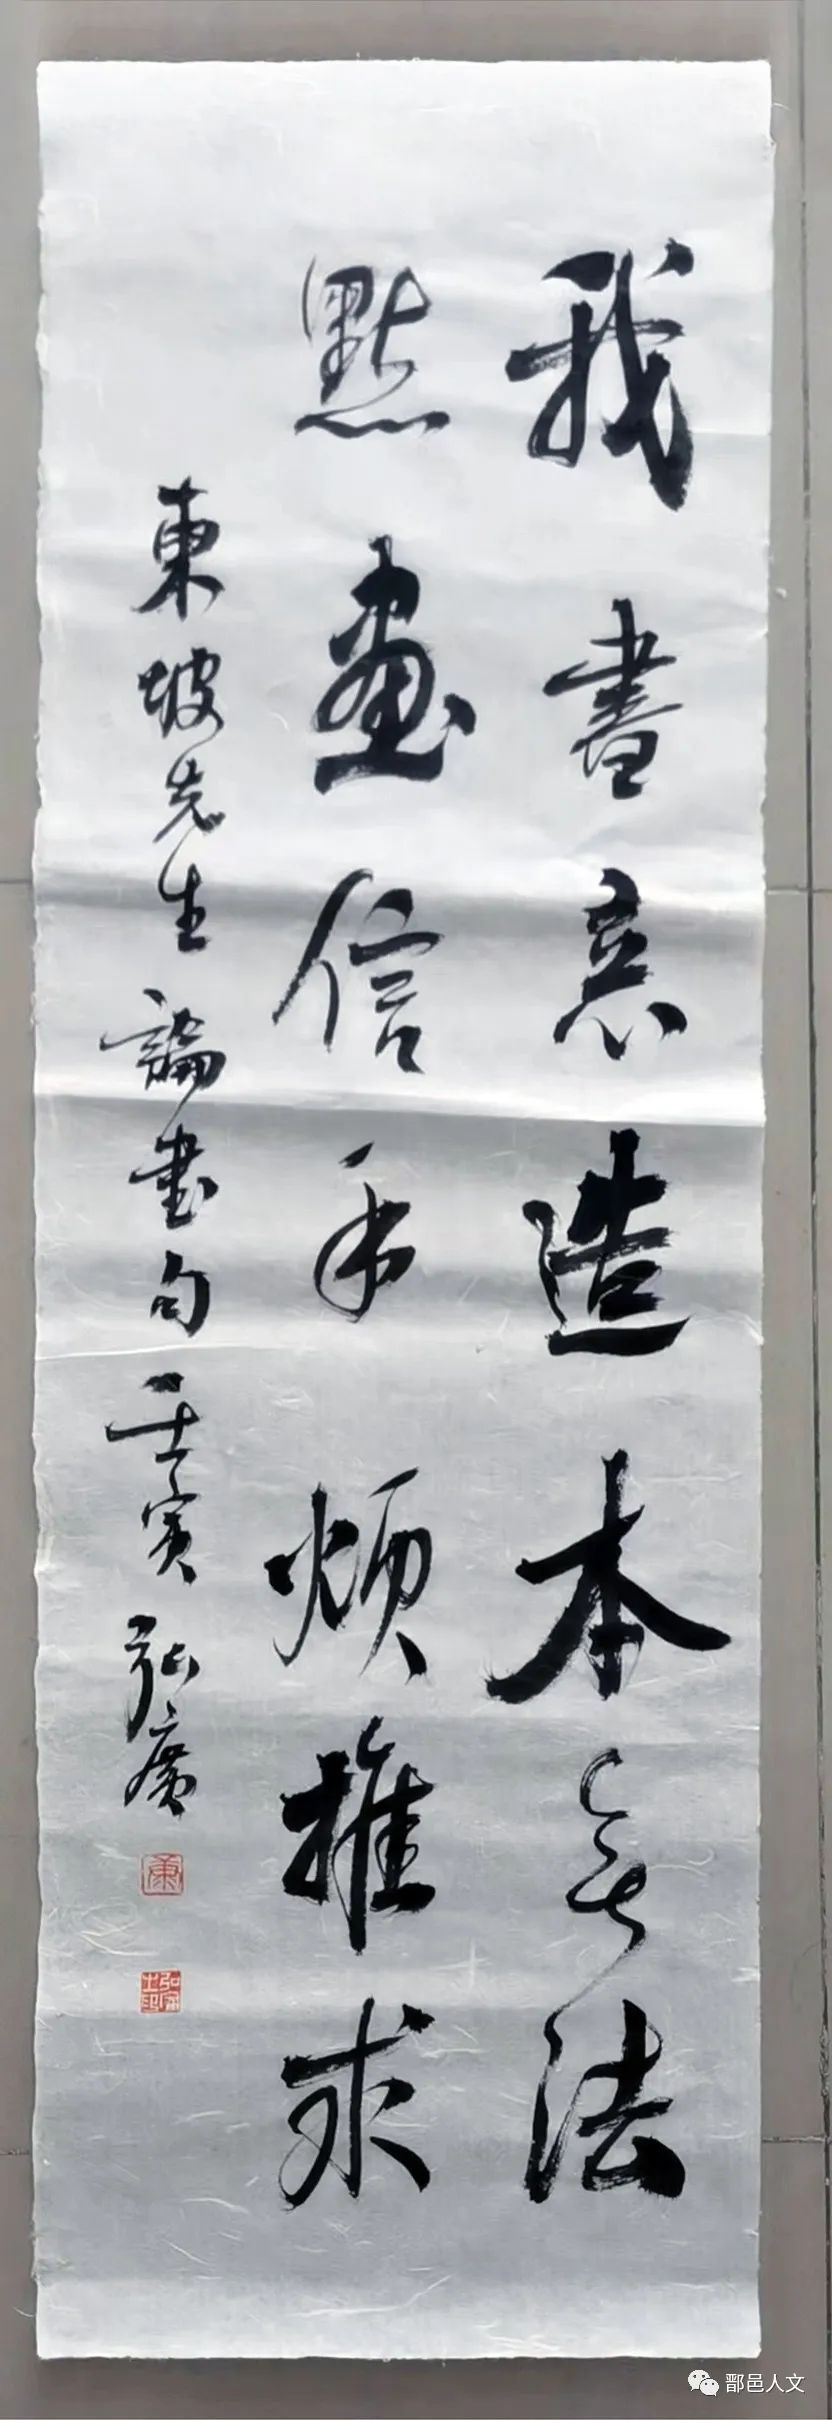 我書意造本無法
點畫信手煩推求
東坡先生論書句 壬寅 弘廣
鄠邑人文